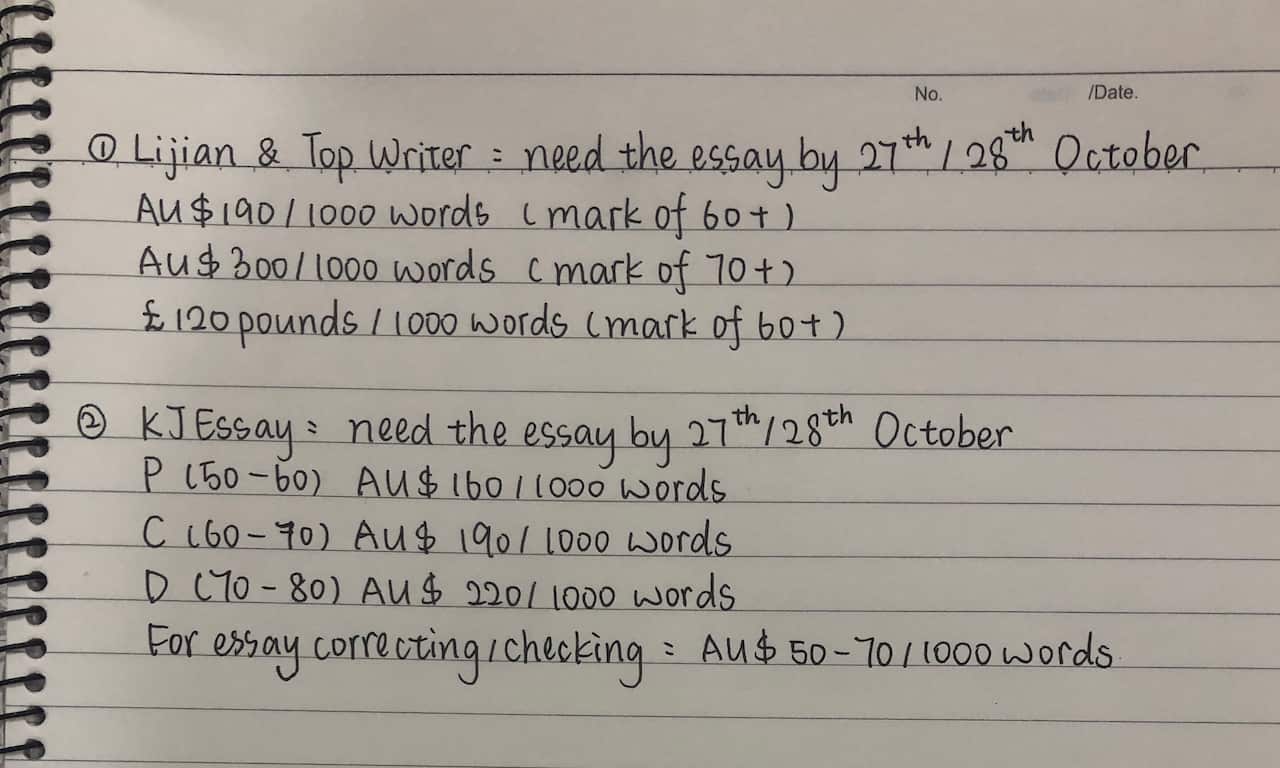 No. /Date.
① Lijian & Top Writer : need the essay by 27th / 28th October
AU$190 / 1000 words (mark of 60+)
AU$ 300 / 1000 words (mark of 70+)
£120 pounds / 1000 words (mark of 60+)
② KJEssay : need the essay by 27th / 28th October
P (50-60) AU$ 160 / 1000 words
C (60-70) AU$ 190 / 1000 words
D (70-80) AU$ 220 / 1000 words
For essay correcting / checking : AU$ 50-70 / 1000 words